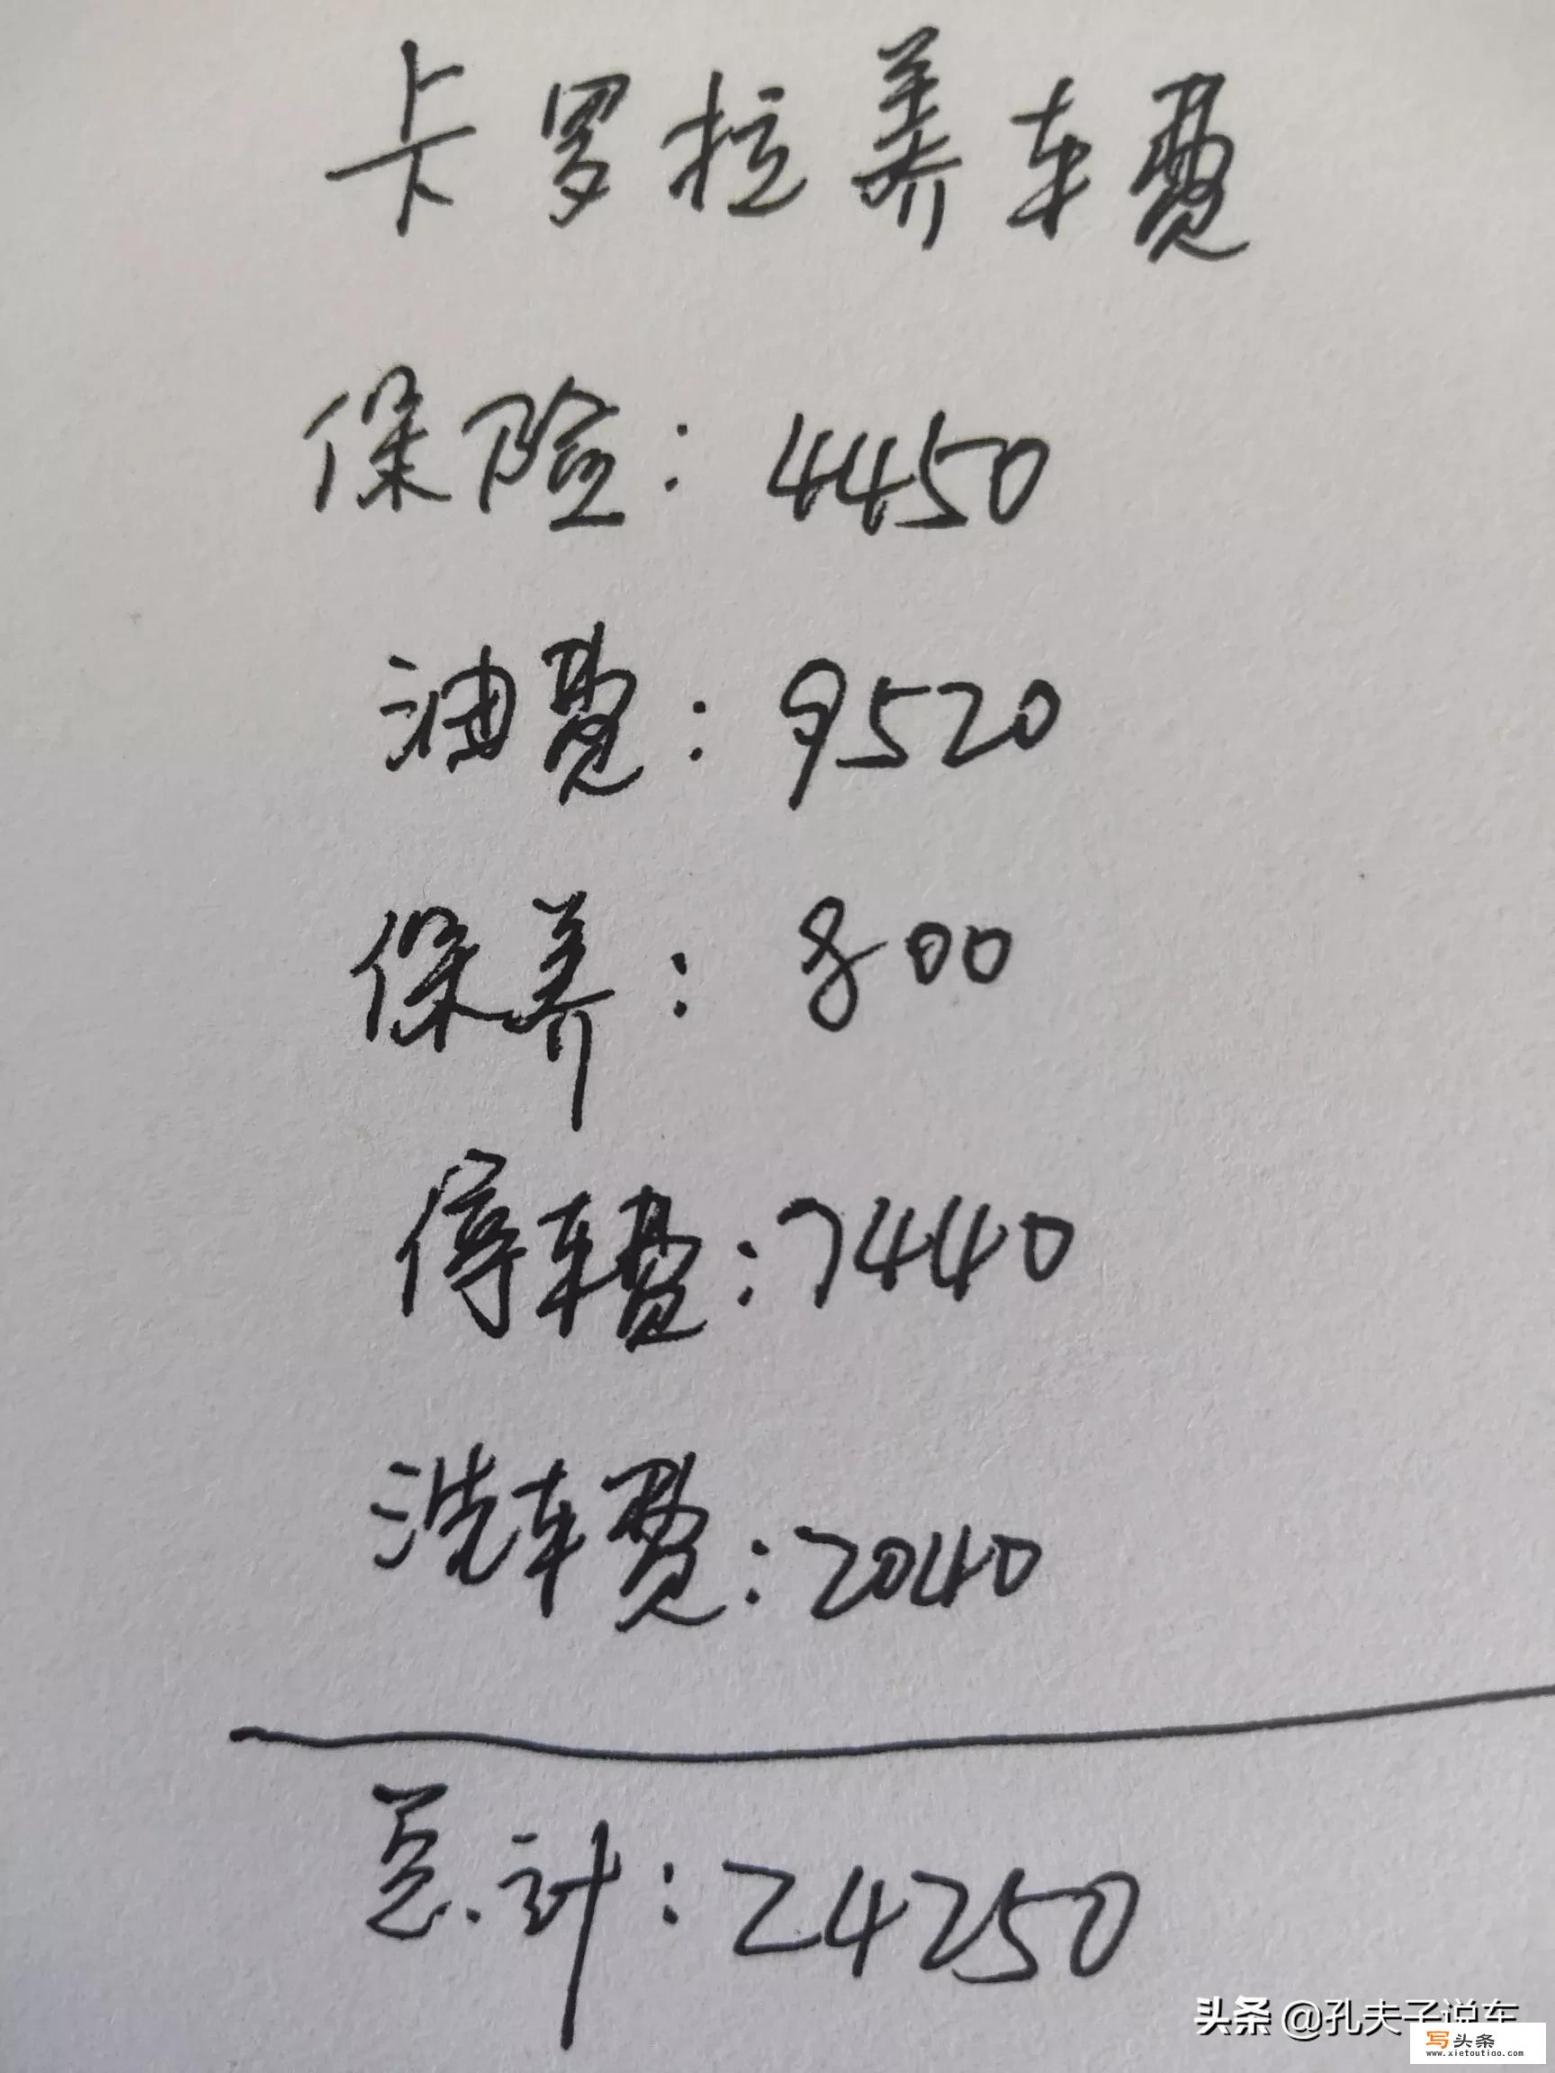 卡罗拉养车费
保险：4450
油费：9520
保养：800
停车费：7440
洗车费：2040
总计：24250
头条 @孔夫子说车
写头条
www.xietoutiao.com